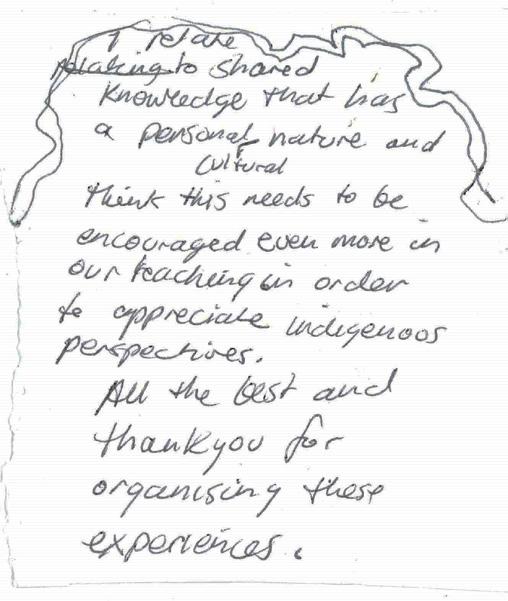 I relate
relating to shared
knowledge that has
a personal nature and
cultural
think this needs to be
encouraged even more in
our teaching in order
to appreciate indigenous
perspectives.
All the best and
thankyou for
organising these
experiences.